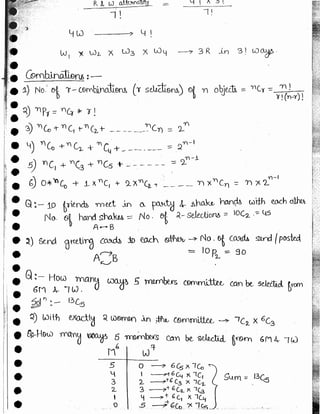 R & W alternately = 4! × 3!
7! 7!
4W → 4!
W₁ × W₂ × W₃ × W₄ → 3R in 3! ways
Combinations :—
1) No. of r-combinations (r selections) of n objects = ⁿCr = n! / r!(n-r)!
2) ⁿPr = ⁿCr × r!
3) ⁿC₀ + ⁿC₁ + ⁿC₂ + ------- ⁿCn = 2ⁿ
4) ⁿC₀ + ⁿC₂ + ⁿC₄ + ------- = 2ⁿ⁻¹
5) ⁿC₁ + ⁿC₃ + ⁿC₅ + ------- = 2ⁿ⁻¹
6) 0×ⁿC₀ + 1×ⁿC₁ + 2×ⁿC₂ + ----- n×ⁿCn = n×2ⁿ⁻¹
Q:— 10 friends meet in a party & shake hands with each other
No. of hand shakes = No. of 2-Selections = 10C₂ = 45
A↔B
2) Send greeting cards to each other → No. of cards send / posted
A B = 10P₂ = 90
Q:— How many ways 5 members committee can be selected from
6M & 7W.
Solⁿ:- 13C₅
2) With exactly 2 women in the committee → 7C₂ × 6C₃
How many ways 5 members can be selected from 6M & 7W
M⁶ W⁷
5 0 → 6C₅ × 7C₀
4 1 → 6C₄ × 7C₁
3 2 → 6C₃ × 7C₂ Sum = 13C₅
2 3 → 6C₂ × 7C₃
1 4 → 6C₁ × 7C₄
0 5 → 6C₀ × 7C₅